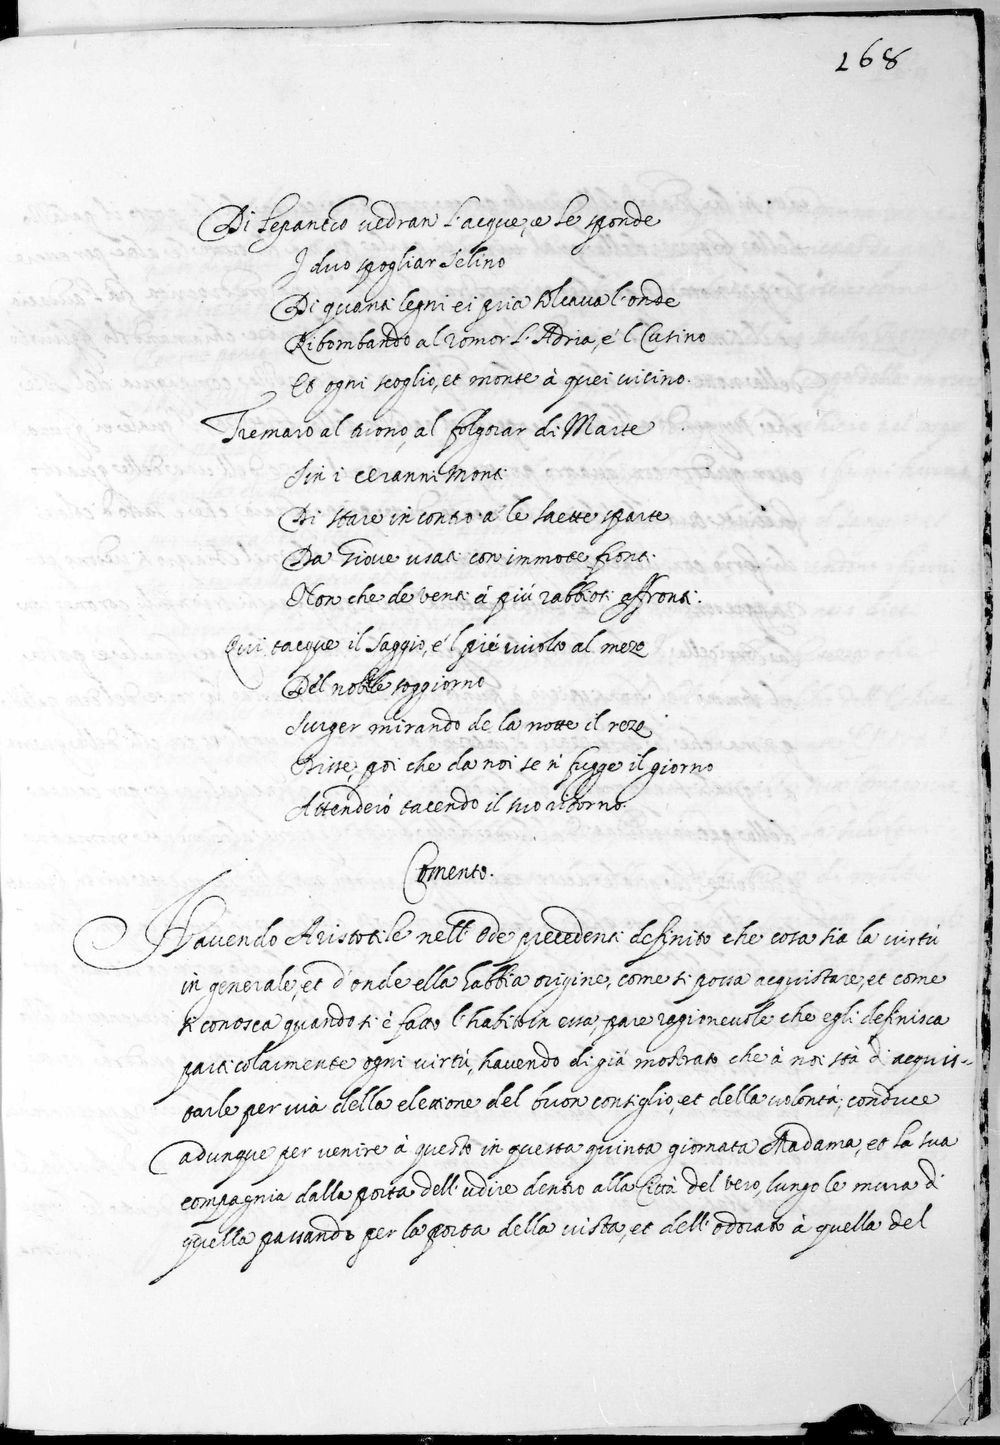 168
Di Lepanto vedran l'acque, e le sponde
I duo spogliar Selino
Di quanti legni ei pria solcava l'onde
Ribombando al romor l'Adria, e 'l Cutino
Et ogni scoglio, et monte à quei vicino.
Tremaro al trono, al folgorar di Marte
Sin i Ceranni monti
Di stare incontro a le saette sparte
Da Giove usati con immote fronti
Non che de venti à più rabbiosi affronti.
Qui tacque il saggio, e 'l piè rivolto al mezo
Del nobile soggiorno
Surger mirando de la notte il rezo
Disse, poi che da noi se n' fugge il giorno
Attenderò tacendo il suo ritorno.
Comento.
Havendo Aristotile nell'Ode precedenti definito che cosa sia la virtù
in generale, et d'onde ella habbia origine, come si possa acquistare, et come
si conosca quando si è fatto l'habito in essa, pare ragionevole che egli definisca
particolarmente ogni virtù, havendo di già mostrato che à noi stà di acquis-
tarle per via della elettione del buon consiglio, et della volontà; conduce
adunque per venire à questo in questa quinta giornata Madama, et la sua
compagnia dalla porta dell'udire dentro alla Città del vero, lungo le mura di
quella passando per la porta della vista, et dell'odorato à quella del